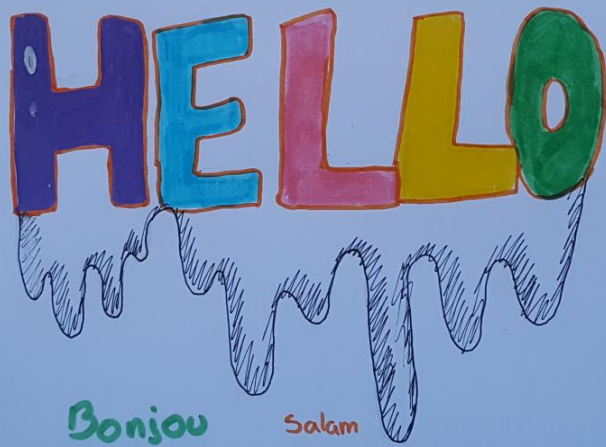 HELLO
Bonjou Salam